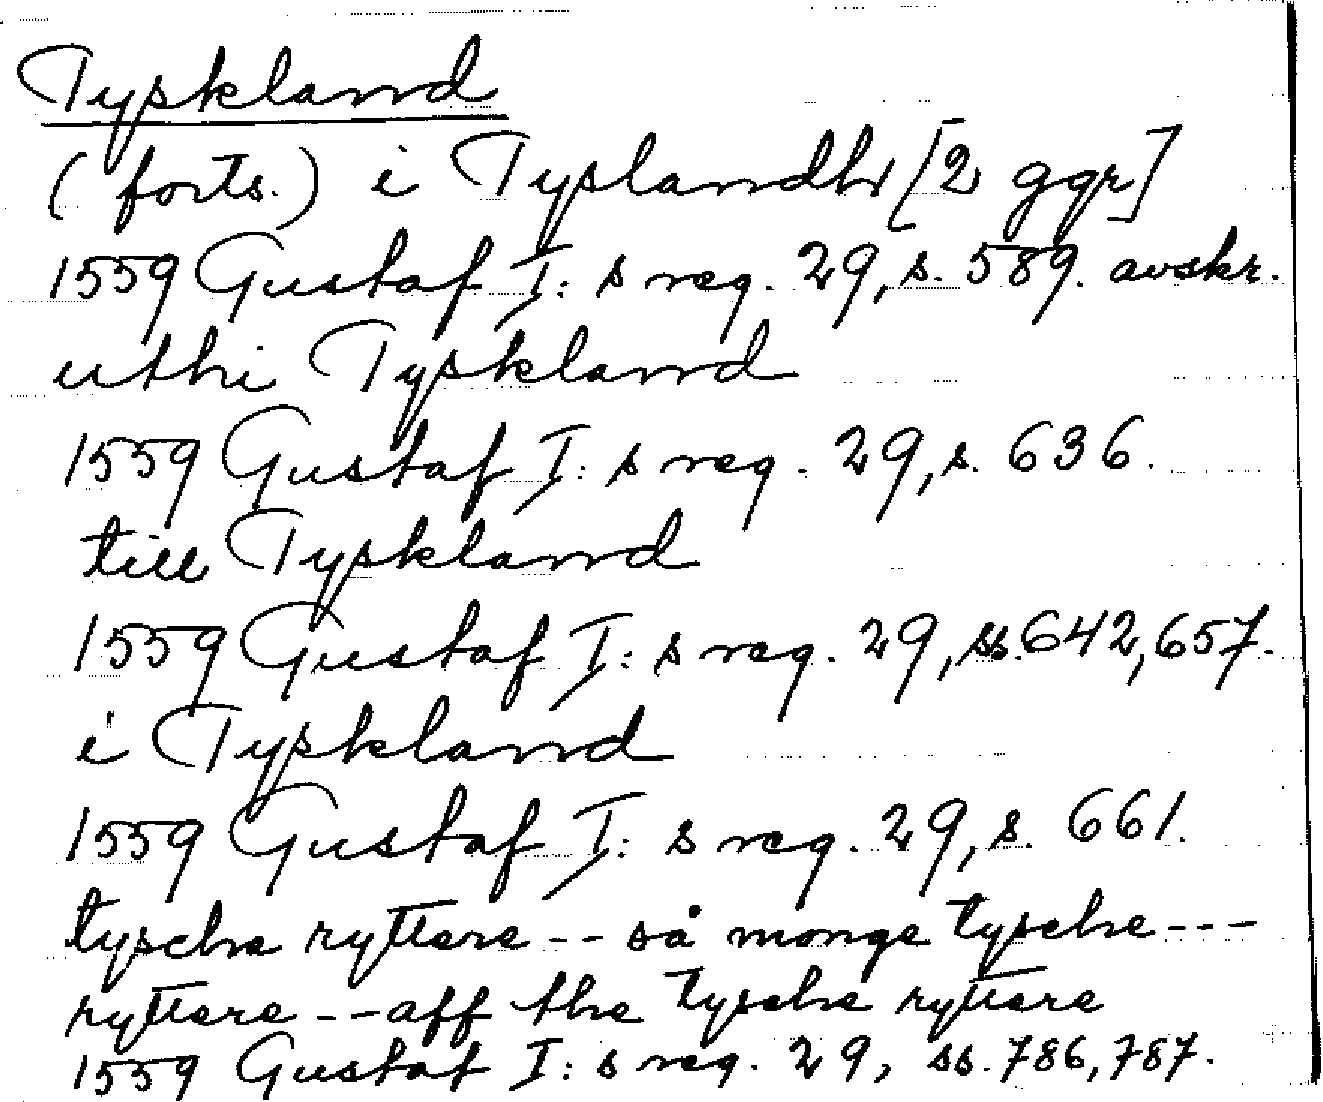 Tyskland
(forts.) i Tyslandh [2 ggr]
1559 Gustaf I: s reg. 29, s. 589. avskr.
uthi Tyskland
1559 Gustaf I: s reg. 29, s. 636.
till Tyskland
1559 Gustaf I: s reg. 29, ss. 642, 657.
i Tyskland
1559 Gustaf I: s reg. 29, s. 661.
tysche ryttere -- så monge tysche ---
ryttere -- aff the tysche ryttere
1559 Gustaf I: s reg. 29, ss. 786, 787.